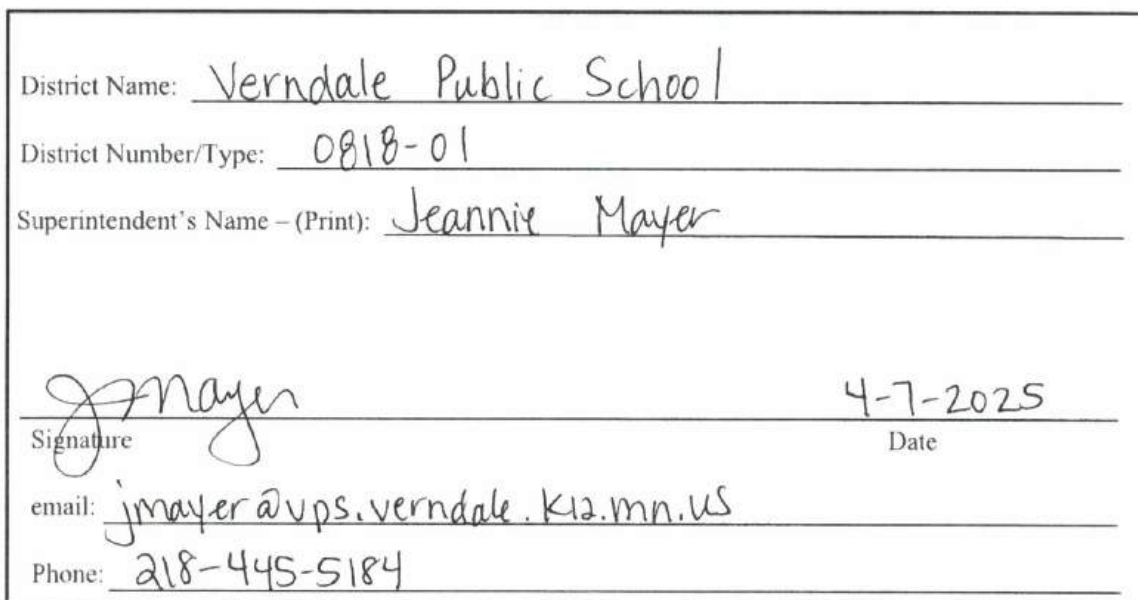 District Name: Verndale Public School
District Number/Type: 0818-01
Superintendent's Name – (Print): Jeannie Mayer
JMayer 4-7-2025
Signature Date
email: jmayer@vps.verndale.k12.mn.us
Phone: 218-445-5184